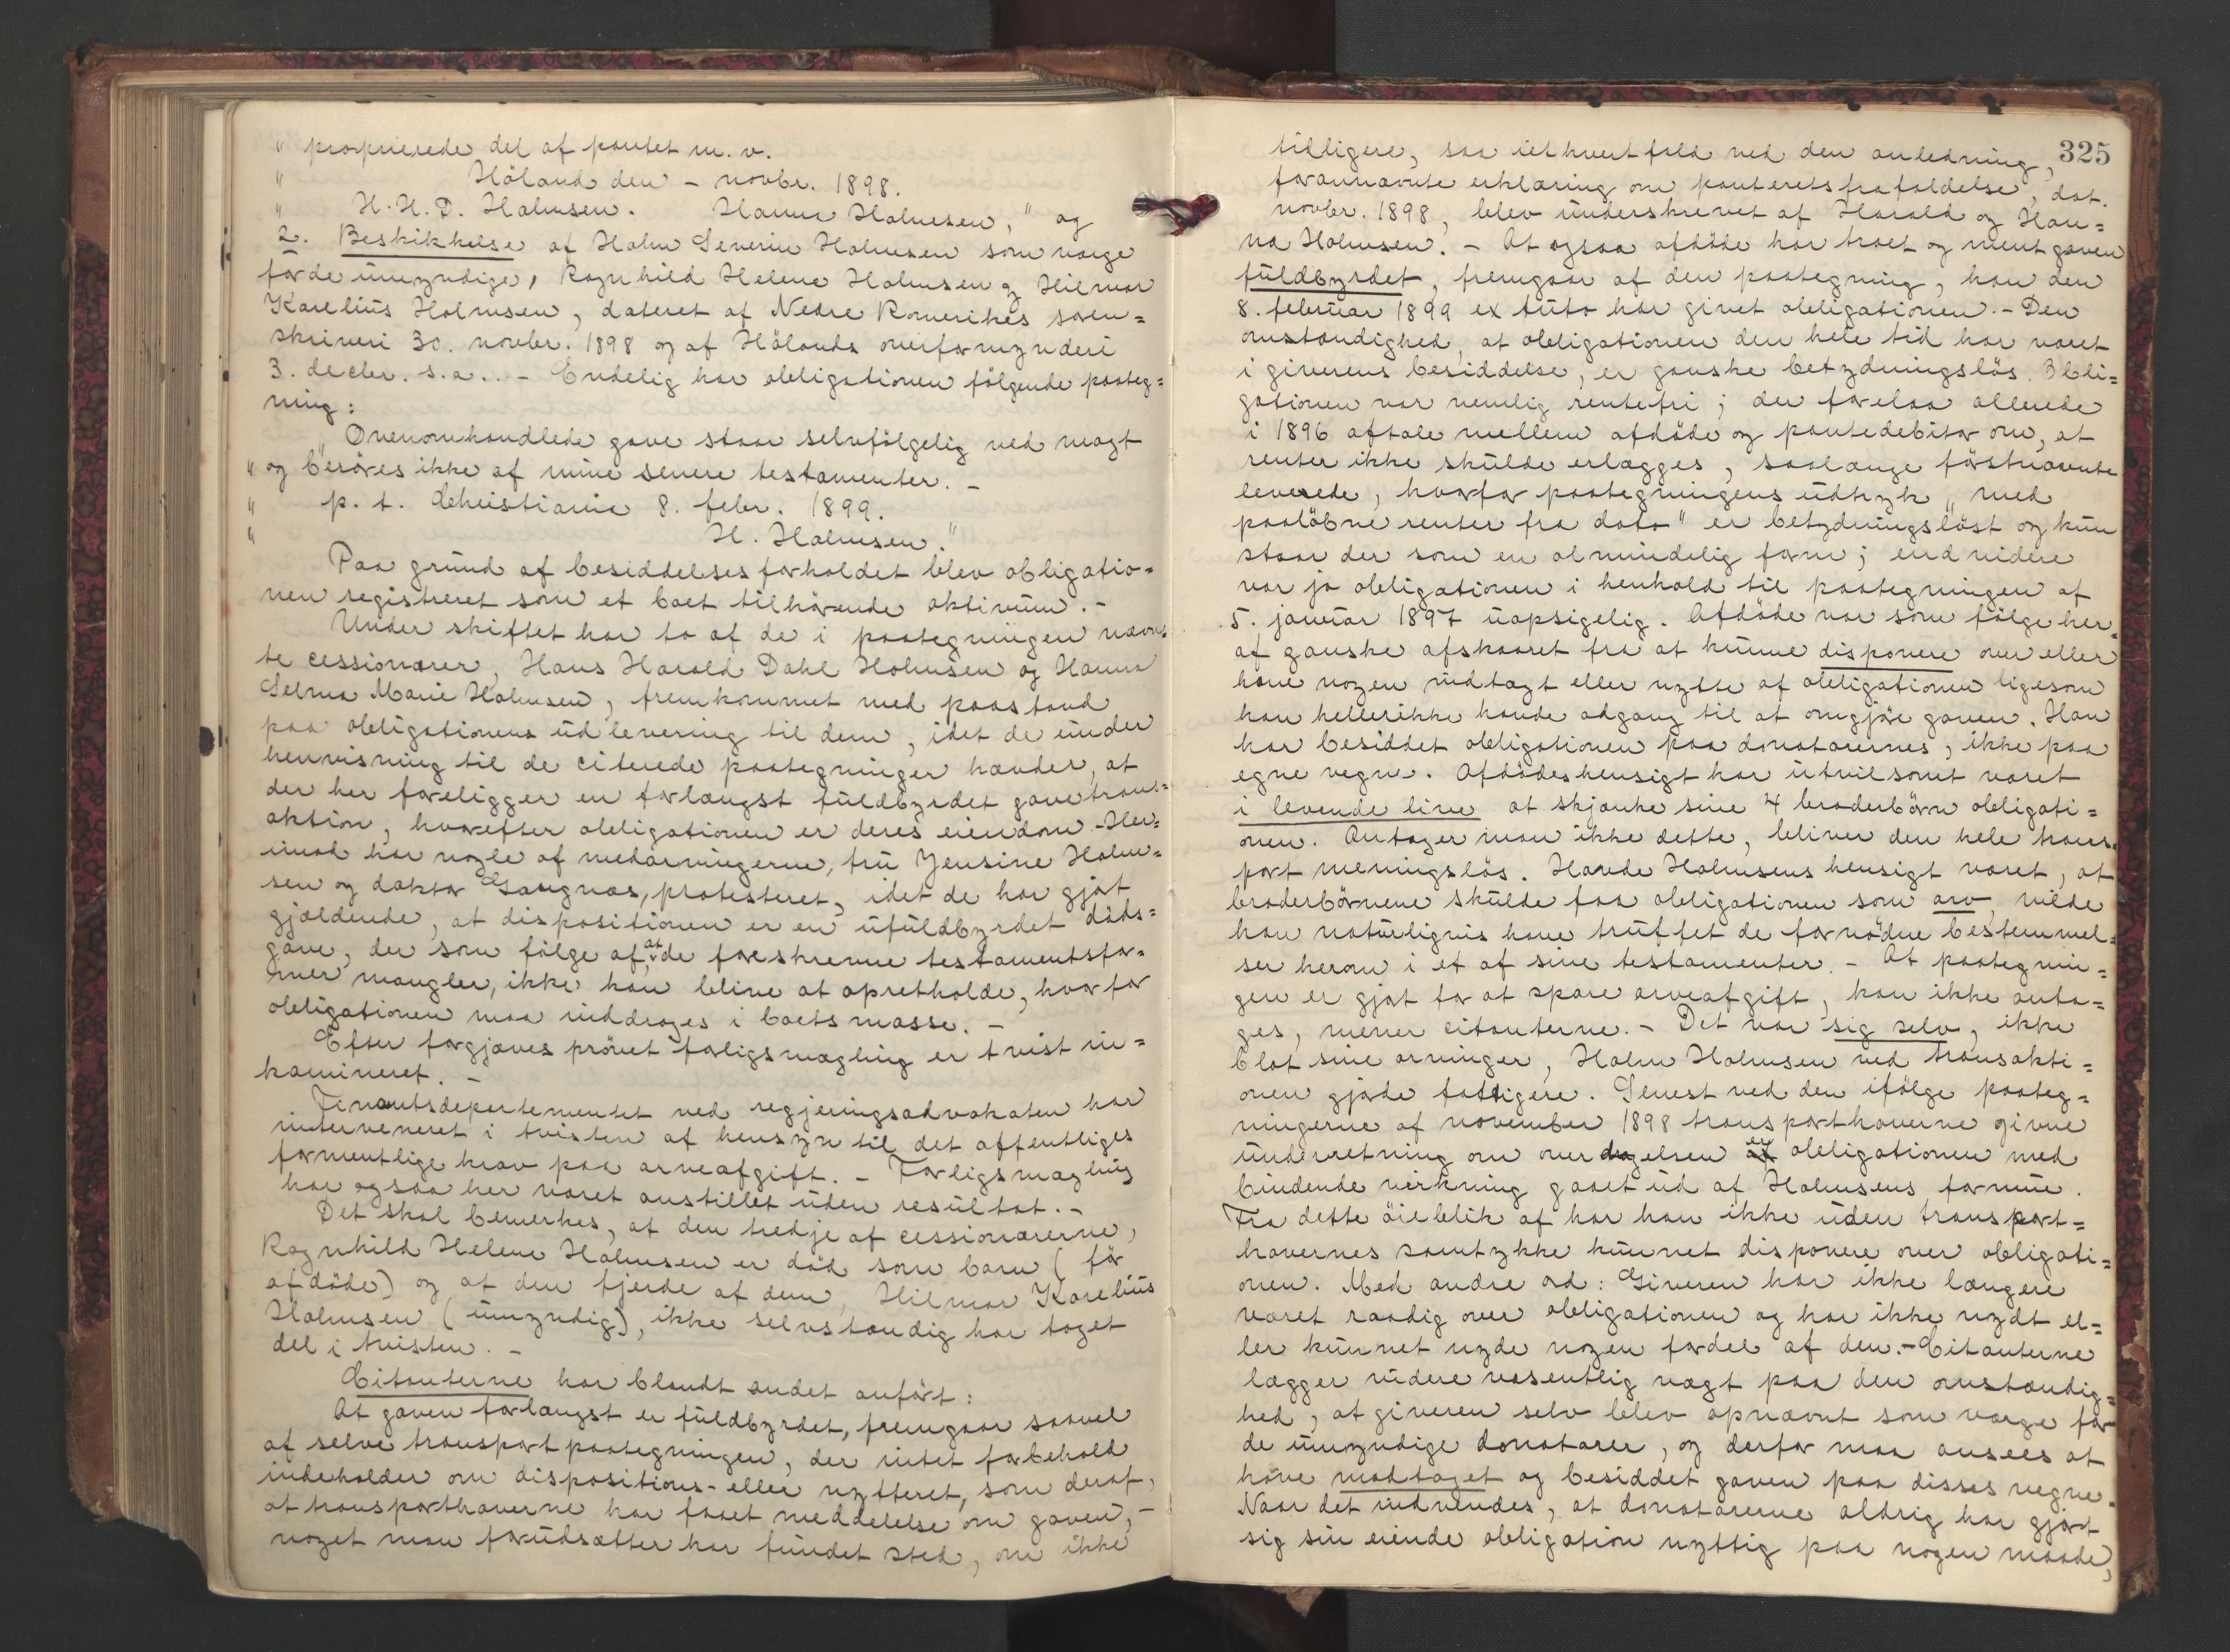 " proprierede del af pantet m. v.
" Höland den – novbr. 1898.
" H. H. D. Holmsen. Hanna Holmesen," og
2. Beskikkelse af Holm Severin Holmsen som værge
for de umyndige, Ragnhild Helene Holmsen og Hilmar
Karelius Holmsen, dateret af Nedre Romerikes soren=
skriveri 30. novbr. 1898 og af Hölands overformynderi
3. decbr. s.a.. – Endelig har obligationen følgende paateg=
ning:
"Ovenomhandlede gave staar selvfölgelig ved magt
" og beröves ikke af mine senere testamenter. –
" p. t. Christiania 8. febr. 1899.
" H. Holmsen."
Paa grund af besiddelsesforholdet blev obligatio=
nen registreret som et boet tilhörende aktivum. –
Under skiftet har to af de i paategningen nævn=
te cessionærer, Hans Harald Dahl Holmsen og Hanna
Selma Marie Holmsen, fremkommet med paastand
paa obligationens udlevering til dem, idet de under
henvisning til de citerede paategninger hævder, at
der her foreligger en forlængst fuldbyrdet gavetrans=
aktion, hvorefter obligationen er deres eiendom. – Her=
imod har nogle af medarvingerne, fru Jensine Holm=
sen og doktor Gangnæs, protesteret, idet de har gjort
gjældende, at dispositionen er en ufuldbyrdet döds=
gave, der som fölge af, at de foreskrevne testamentsfor=
mer mangler, ikke kan blive at opretholde, hvorfor
obligationen maa inddrages i boets masse. –
Efter forgjæves prövet forligsmægling er tvist in=
kamineret. –
Finantsdepartementet ved regjeringsadvokaten har
interveneret i tvisten af hensyn til det offentliges
formentlige krav paa arveafgift. – Forligsmægling
har ogsaa her været anstillet uden resultat. –
Det skal bemerkes, at den tredje af cessionærerne,
Ragnhild Helene Holmsen er död som barn (för
afdöde) og at den fjerde af dem, Hilmar Karelius
Holmsen (umyndig), ikke selvstændig har taget
del i tvisten. –
Citanterne har blandt andet anfört:
At gaven forlængst er fuldbyrdet, fremgaar saavel
af selve transportpaategningen, der intet forbehold
indeholder om dispositions- eller nytteret, som deraf,
at transporthaverne har faaet meddelelse om gaven, –
noget man forudsætter har fundet sted, om ikke
325
tidligere, saa iethvertfald ved den anledning,
forannævnte erklæring om panteretsfrafaldelse, dat.
novbr. 1898, blev underskrevet af Harald og Han=
na Holmsen. – At ogsaa afdöde har troet og ment gaven
fuldbyrdet, fremgaar af den paategning, han den
8. februar 1899 ex tuto har givet obligationen. – Den
omstændighed, at obligationen den hele tid har været
i giverens besiddelse, er ganske betydningslös. Obli=
gationen var nemlig rentefri; der forelaa allerede
i 1896 aftale mellem afdöde og pantedebitor om, at
renter ikke skulde erlægges, saalænge förstnævnte
levede, hvorfor paategningens udtryk "med
paalöbne renter fra dato" er betydningslöst og kun
staar der som en almindelig form; endvidere
var jo obligationen i henhold til paategningen af
5. januar 1897 uopsigelig. Afdöde var som fölge her=
af ganske afskaaret fra at kunne disponere over eller
have nogen indtægt eller nytte af obligationen ligesom
han hellerikke havde adgang til at omgjöre gaven. Han
har besiddet obligationen paa donatarernes, ikke paa
egne vegne. Afdödes hensigt har utvilsomt været
i levende live at skjænke sine 4 broderbörn obligati=
onen. Antager man ikke dette, bliver den hele trans=
port meningslös. Havde Holmsens hensigt været, at
broderbörnene skulde faa obligationen som arv, vilde
han naturligvis have truffet de fornödne bestemmel=
ser herom i et af sine testamenter. – At paategnin=
gen er gjort for at spare arveafgift, kan ikke anta=
ges, mener citanterne. – Det var sig selv, ikke
blot sine arvinger, Holm Holmsen ved transakti=
onen gjorde fattigere. Senest ved den ifölge paateg=
ningerne af november 1898 transporthaverne givne
underretning om overdragelsen er obligationen med
bindende virkning gaaet ud af Holmsens formue.
Fra dette öieblik af har han ikke uden transport=
havernes samtykke kunnet disponere over obligati=
onen. Med andre ord: Giveren har ikke længere
været raadig over obligationen og har ikke nydt el=
ler kunnet nyde nogen fordel af den. – Citanterne
lægger videre væsentlig vægt paa den omstændig=
hed, at giveren selv blev opnævnt som værge for
de umyndige donatarer, og derfor maa ansees at
have modtaget og besiddet gaven paa disses vegne.
Naar det indvendes, at donatarerne aldrig har gjort
sig sin eiende obligation nyttig paa nogen maade,